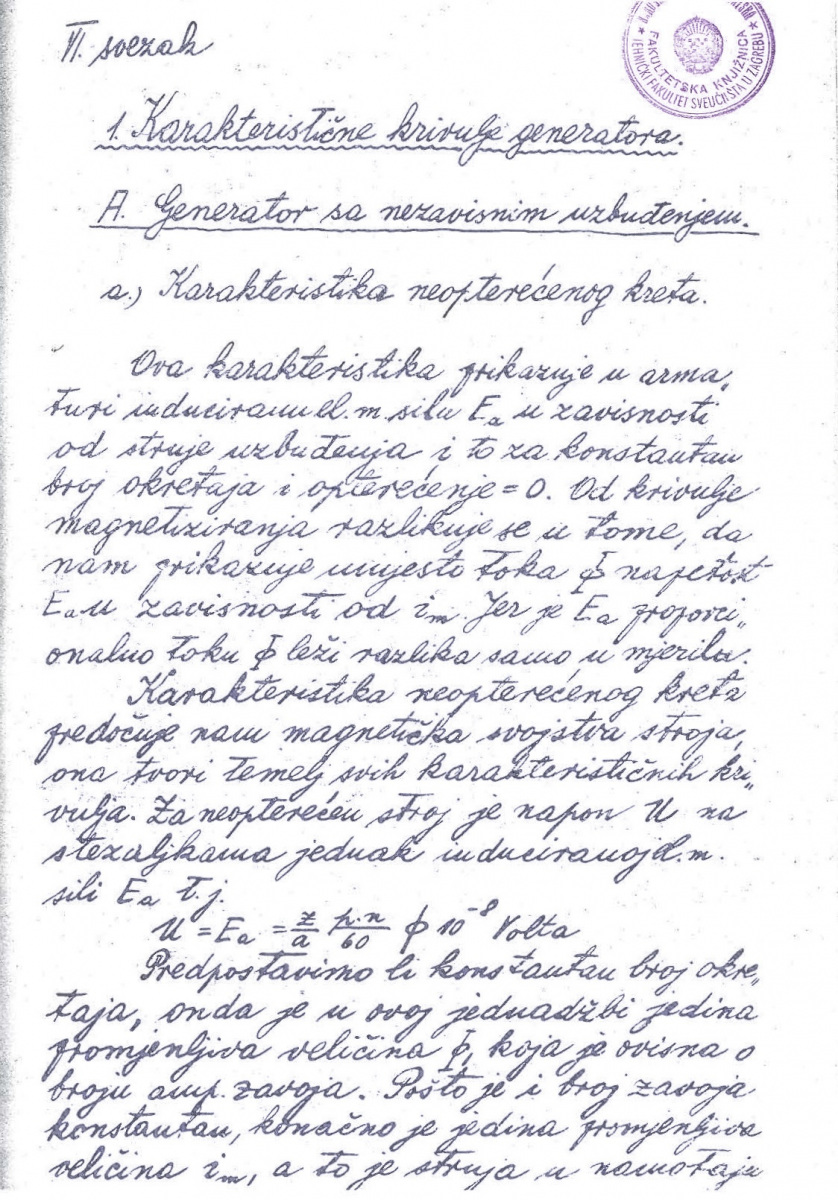 VI. svezak
FAKULTETSKA KNJIŽNICA
TEHNIČKI FAKULTET SVEUČILIŠTA U ZAGREBU
1. Karakteristične krivulje generatora.
A. Generator sa nezavisnim uzbuđenjem.
a.) Karakteristika neopterećenog kreta.
Ova karakteristika prikazuje u arma„
turi induciranu el. m. silu Ea u zavisnosti
od struje uzbuđenja i to za konstantan
broj okretaja i opterećenje = 0. Od krivulje
magnetiziranja razlikuje se u tome, da
nam prikazuje umjesto toka ϕ napetost
Ea u zavisnosti od im. Jer je Ea proporci„
onalno toku ϕ leži razlika samo u mjerilu.
Karakteristika neopterećenog kreta
predočuje nam magnetička svojstva stroja,
ona tvori temelj svih karakterističnih kri„
vulja. Za neopterećen stroj je napon U na
stezaljkama jednak induciranoj el. m.
sili Ea t.j.
U = Ea = z/a p.n/60 ϕ 10⁻⁸ Volta
Predpostavimo li konstantan broj okre„
taja, onda je u ovoj jednadžbi jedina
promjenljiva veličina ϕ, koja je ovisna o
broju amp. zavoja. Pošto je i broj zavoja
konstantan, konačno je jedina promjenljiva
veličina im, a to je struja u namotaju